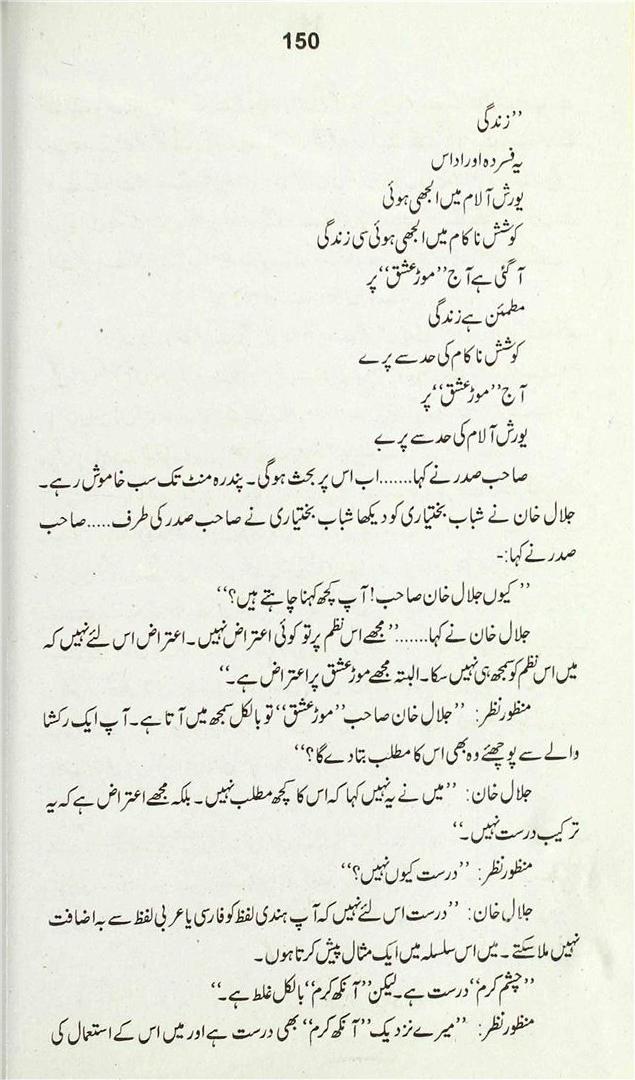 150
’’زندگی
یہ فسردہ اور اداس
یورش آلام میں الجھی ہوئی
کوشش ناکام میں الجھی ہوئی سی زندگی
آ گئی ہے آج ’’موڑ عشق‘‘ پر
مطمئن ہے زندگی
کوشش ناکام کی حد سے پرے
آج ’’موڑ عشق‘‘ پر
یورش آلام کی حد سے پرے
صاحب صدر نے کہا.......اب اس پر بحث ہوگی۔ پندرہ منٹ تک سب خاموش رہے۔
جلال خان نے شباب بختیاری کو دیکھا شباب بختیاری نے صاحب صدر کی طرف.....صاحب
صدر نے کہا:-
’’کیوں جلال خان صاحب! آپ کچھ کہنا چاہتے ہیں؟‘‘
جلال خان نے کہا.......’’مجھے اس نظم پر تو کوئی اعتراض نہیں۔ اعتراض اس لئے نہیں کہ
میں اس نظم کو سمجھ ہی نہیں سکا۔ البتہ مجھے موڑ عشق پر اعتراض ہے۔‘‘
منظور نظر: ’’جلال خان صاحب ’’موڑ عشق‘‘ تو بالکل سمجھ میں آتا ہے۔ آپ ایک رکشا
والے سے پوچھئے وہ بھی اس کا مطلب بتا دے گا؟‘‘
جلال خان: ’’میں نے یہ نہیں کہا کہ اس کا کچھ مطلب نہیں۔ بلکہ مجھے اعتراض ہے کہ یہ
ترکیب درست نہیں۔‘‘
منظور نظر: ’’درست کیوں نہیں؟‘‘
جلال خان: ’’درست اس لئے نہیں کہ آپ ہندی لفظ کو فارسی یا عربی لفظ سے بہ اضافت
نہیں ملا سکتے۔ میں اس سلسلہ میں ایک مثال پیش کرتا ہوں۔
’’چشم کرم‘‘ درست ہے۔ لیکن ’’آنکھ کرم‘‘ بالکل غلط ہے۔‘‘
منظور نظر: ’’میرے نزدیک ’’آنکھ کرم‘‘ بھی درست ہے اور میں اس کے استعمال کی